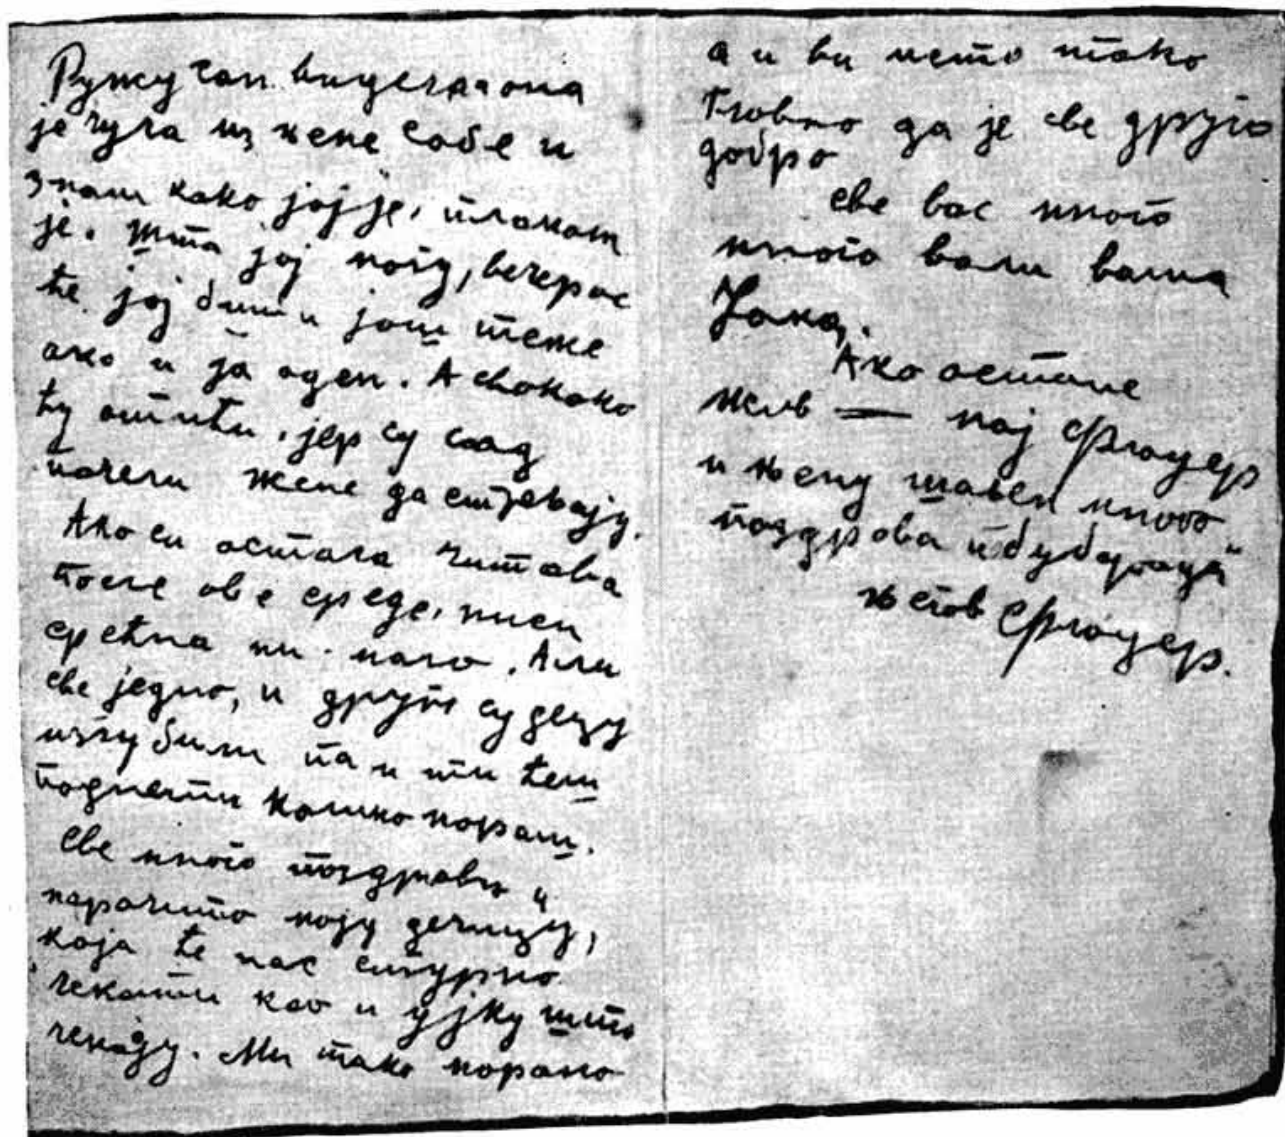 Ружу сам видела а она
је чула из њене собе и
знам како јој је, плакат
је. Шта јој могу, вечерас
ће јој бити још теже
ако и ја одем. А свакако
ћу отићи, јер су сад
почели жене да стрељају.
Ако си остала читава
после ове среде, ниси
срећна ни мало. Али
све једно, и други су децу
изгубили па и ти ћеш
поднети колико мораш.
Све много поздрави и
нарочито моју дечицу,
која ће нас сигурно
чекати као и ујку што
чекају. Ми тако морамо
а и ви исто тако
Главно да је све друго
добро
све вас много
много воли ваша
Јана.
Ако остане
жив — мој
и њему много
поздрава и
његов